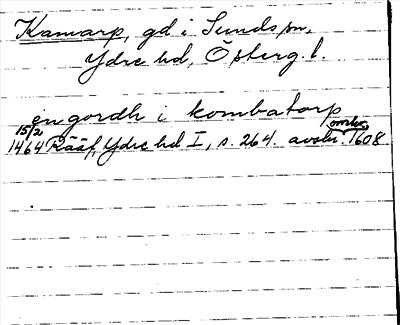 Kamarp, gd i Sunds sn,
Ydre hd, Österg. l.
en gordh i kombatorp
15/2 omkr.
1464 Rääf, Ydre hd I, s. 264. avskr. 1608